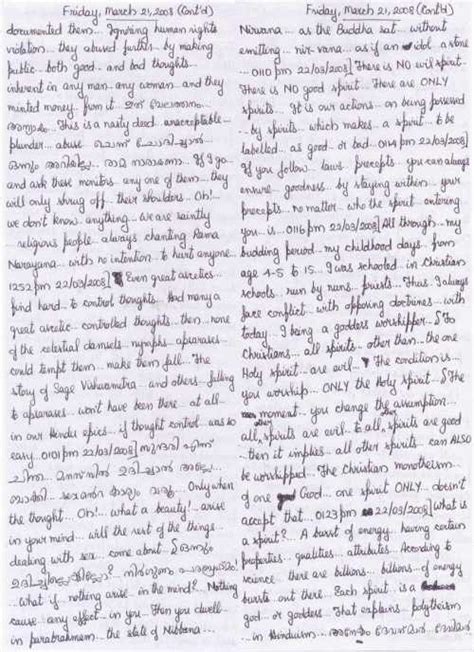 Friday, March 21, 2008 (Cont'd)
documented them... Ignoring human rights
violation... they abused further... by making
public... both good... and bad thoughts...
inherent in any man.. any woman... and they
minted money.. from it.
This is a nasty deed.. unacceptable..
plunder... abuse...
If I go..
and ask these monitors.. any one of them... they
will only shrug off.. their shoulders.. Oh!...
we don't know.. anything... we are saintly
.. religious people.. always chanting Rama
Narayana... with no intention.. to hurt anyone..
1252 pm 22/03/2008] Even great ascetics...
find hard.. to control thoughts. Had many a
great ascetic.. controlled thoughts.. then.. none
of the celestial damsels.. nymphs.. apsaras..
could tempt them.. make them fall... The
story of Sage Vishwamitra.. and others.. falling
to apsaras.. won't have been there.. at all..
in our Hindu epics.. if thought control.. was so
easy.. 0101 pm 22/03/2008]
Only when
the thought.. Oh!... what a beauty!.. arise
in your mind... will the rest of the things..
dealing with sex.. come about..
... what if.. nothing arise.. in the mind?.. Nothing
cause.. any effect.. in you.. Then you dwell..
in parabrahmam.. the state of Nibbana...
Friday, March 21, 2008 (Cont'd)
Nirvana... as the Buddha sat... without
emitting... nir. vana.. as if an idol.. a stone
.. 0110 pm 22/03/2008] There is NO evil spirit..
There is NO good spirit... There are ONLY
spirits... It is our actions.. on being possessed
.. by spirits.. which makes.. a spirit.. to be
labelled.. as good.. or bad.. 0114 pm 22/03/2008]
If you follow.. laws.. precepts.. you can always
ensure.. goodness.. by staying within.. your
precepts.. no matter.. who the spirit.. entering
you.. is.. 0116 pm 22/03/2008] All through.. my
budding period.. my childhood days.. from
age 4-5 to 15.. I was schooled.. in Christian
schools.. run by nuns.. priests.. Thus.. I always
face conflict.. with opposing doctrines.. with
today.. I being a goddess worshipper..
Christians... all spirits.. other than.. the one
Holy spirit.. are evil.. The condition is..
you worship.. ONLY the Holy spirit.. The
moment.. you change the assumption..
all spirits are evil.. to all spirits are good
.. then it implies.. all other spirits.. can ALSO
be worshipped.. The Christian monotheism..
of one God.. one spirit ONLY.. doesn't
accept that.. 0123 pm 22/03/2008] What is
a spirit?.. A burst of energy.. having certain
properties.. qualities.. attributes.. According to
science.. there are billions.. billions.. of energy
bursts.. out there. Each spirit.. is a
god.. or goddess. That explains.. polytheism
.. in Hinduism..